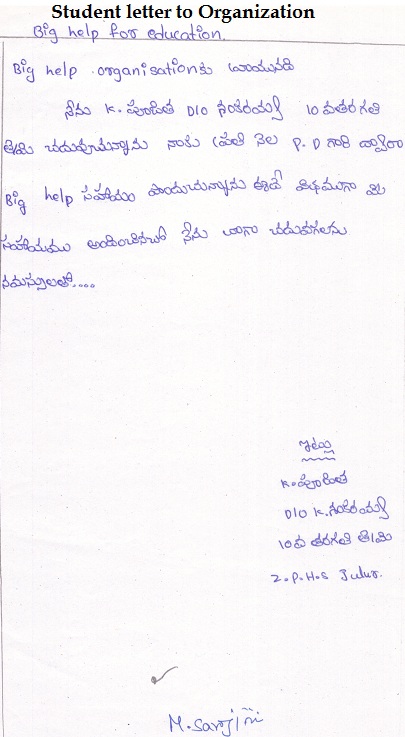 Student letter to Organization
Big help for education.
Big help organisationకు వ్రాయునది
నేను K. పూజిత D/O శంకరయ్య 10 వతరగతి
చదువుచున్నాను నాకు ప్రతి నెల P. D గారి ద్వారా
Big help సహాయం పొందుచున్నాను ఈ విధముగా మీ
సహాయము అందించినచో నేను బాగా చదువగలను
నమస్సులతో....
ఇట్లు
K. పూజిత
D/O K. శంకరయ్య
10వ తరగతి
Z.P.H.S Julur.
M. Sarojini